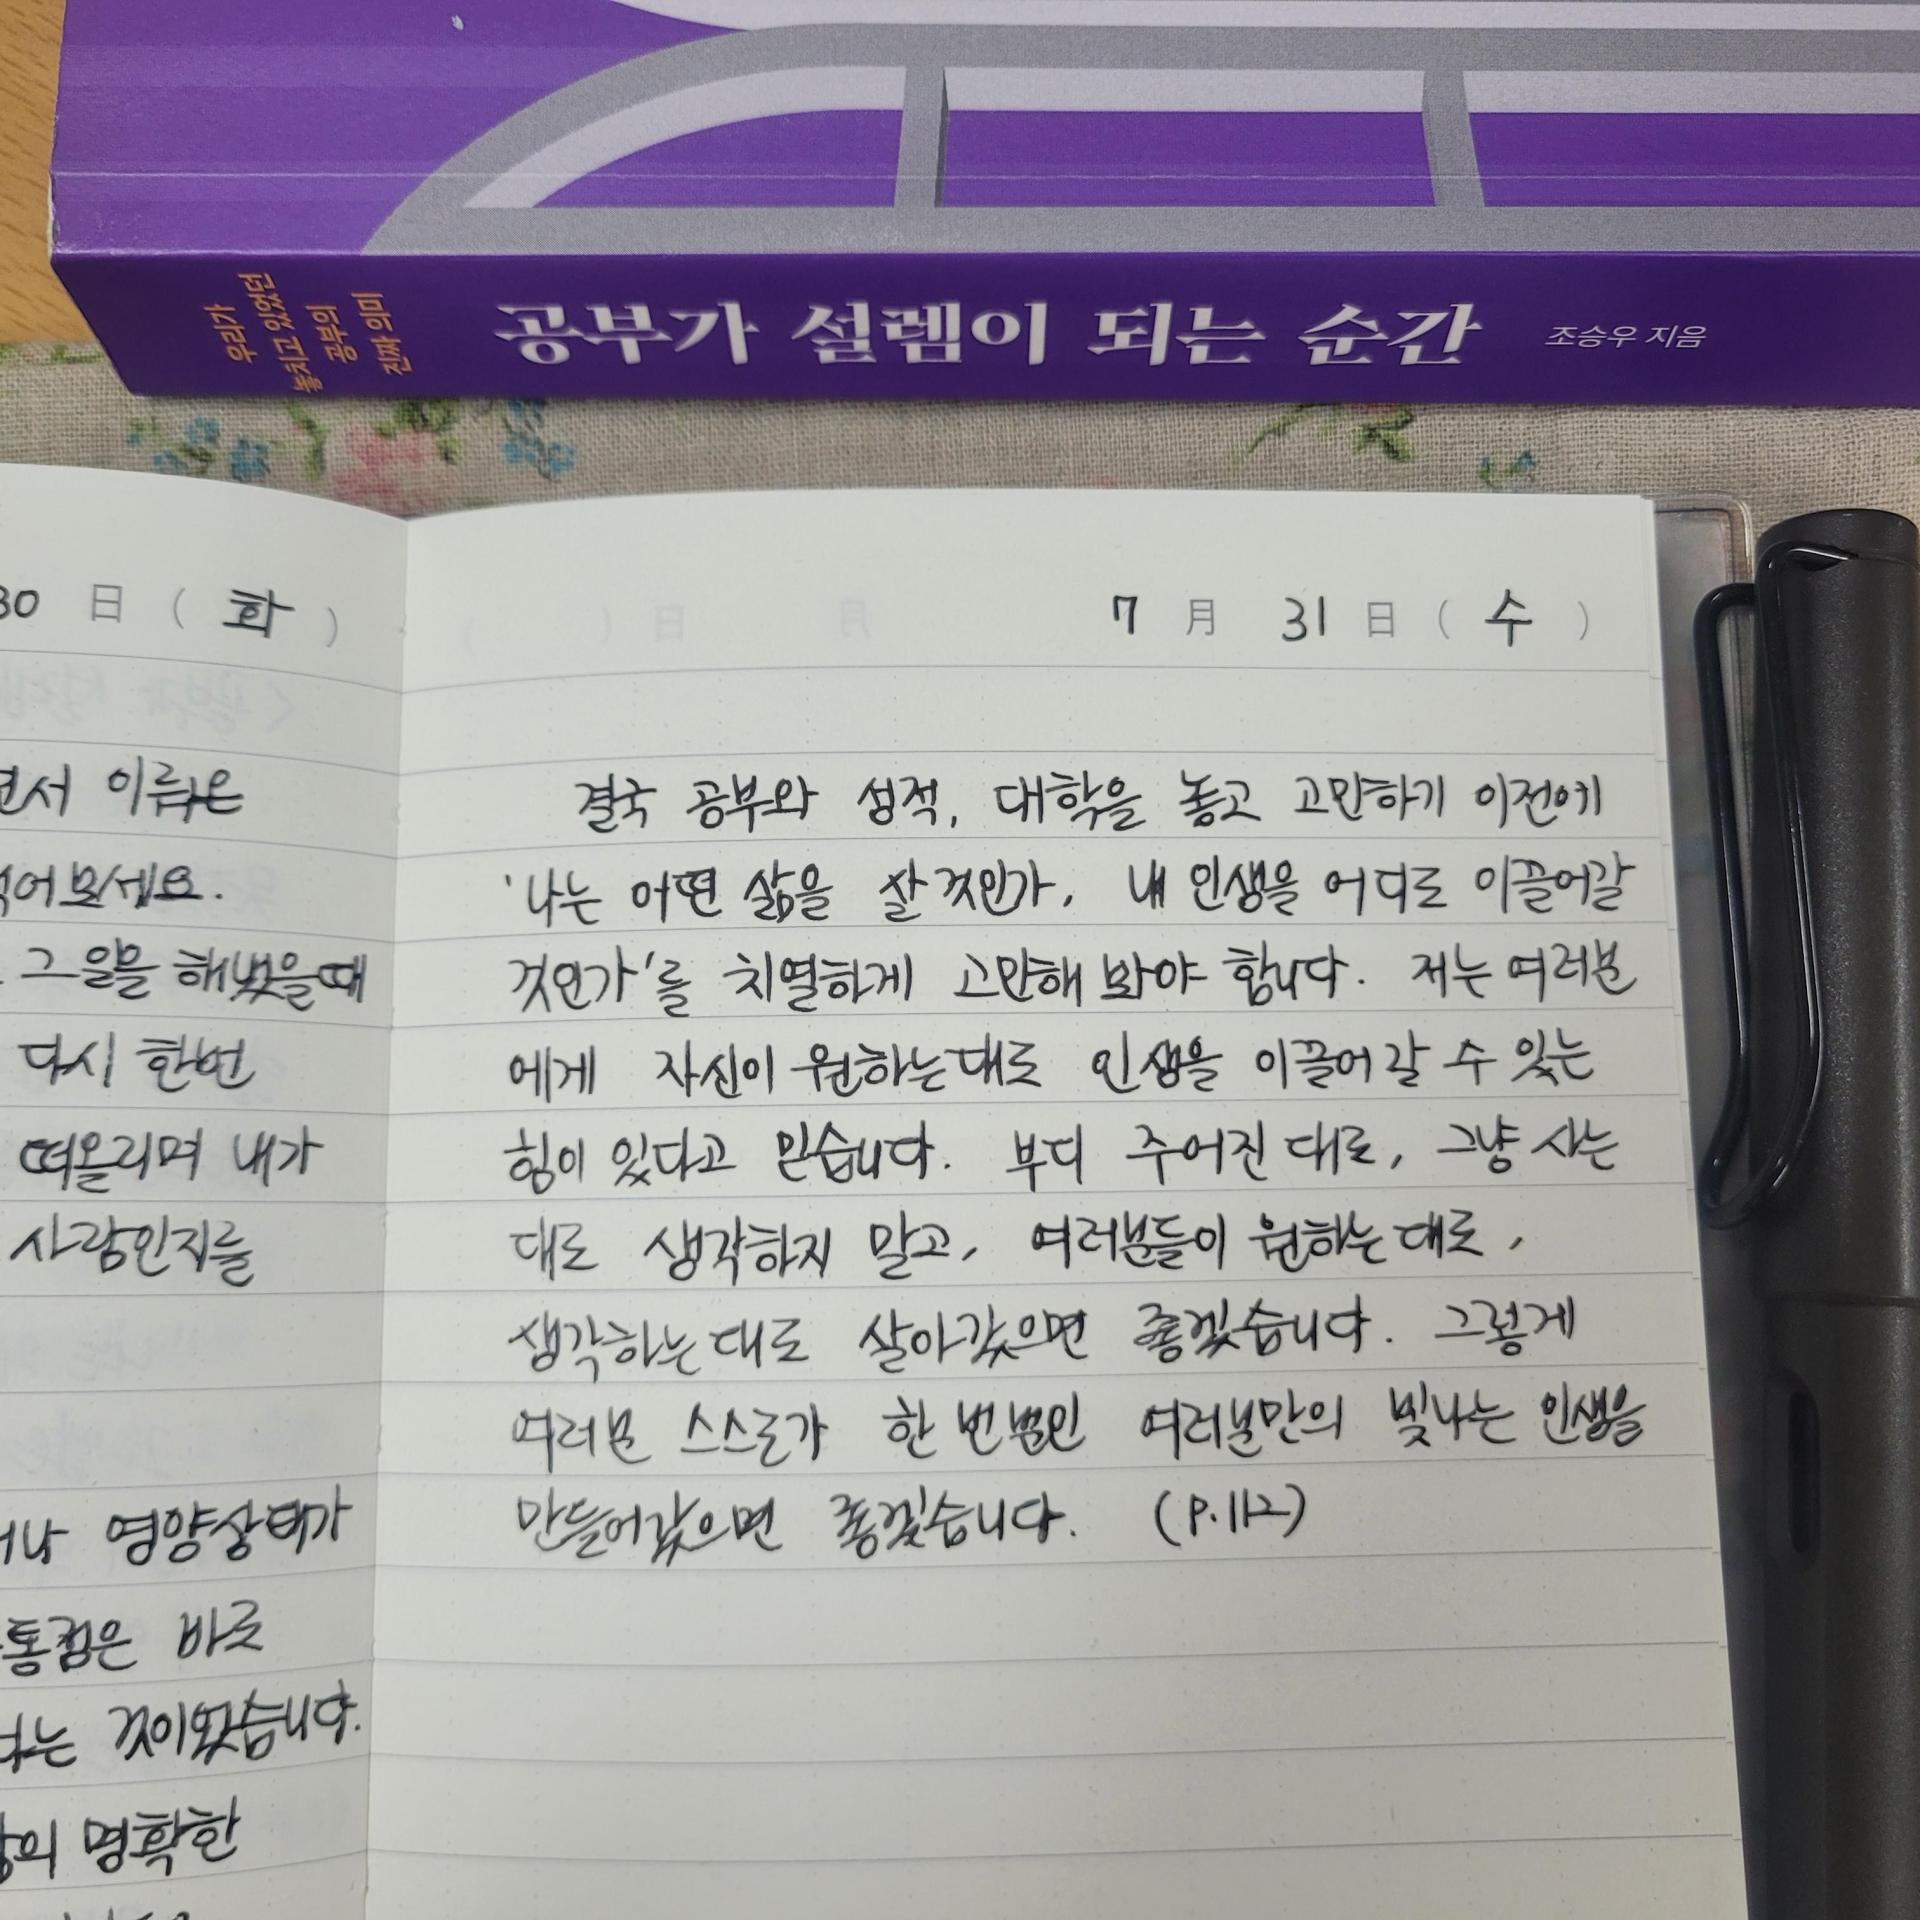 우리가
놓치고 있었던
공부의
진짜 의미
공부가 설렘이 되는 순간 조승우 지음
30 日 ( 화 )
면서 이름은
적어보세요.
그 일을 해냈을때
다시 한번
떠올리며 내가
사람인지를
거나 영양상태가
공통점은 바로
다는 것이었습니다.
명확한
7 月 31 日 ( 수 )
결국 공부와 성적, 대학을 놓고 고민하기 이전에
'나는 어떤 삶을 살 것인가, 내 인생을 어디로 이끌어갈
것인가'를 치열하게 고민해 봐야 합니다. 저는 여러분
에게 자신이 원하는대로 인생을 이끌어 갈 수 있는
힘이 있다고 믿습니다. 부디 주어진 대로, 그냥 사는
대로 생각하지 말고, 여러분들이 원하는대로,
생각하는대로 살아갔으면 좋겠습니다. 그렇게
여러분 스스로가 한 번뿐인 여러분만의 빛나는 인생을
만들어갔으면 좋겠습니다. (P.112)